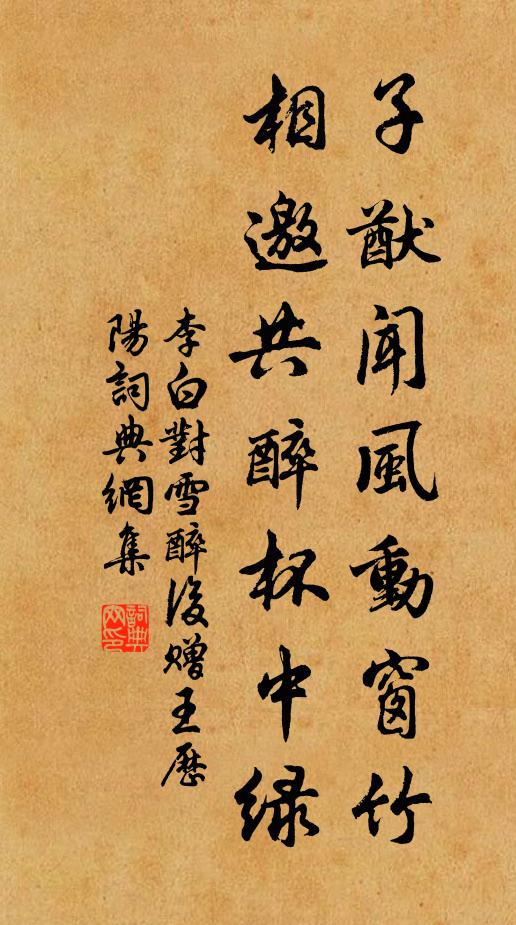 子猷聞風動窗竹
相邀共醉杯中綠
李白對雪醉後贈王歷
陽詞典網集
詞典網印